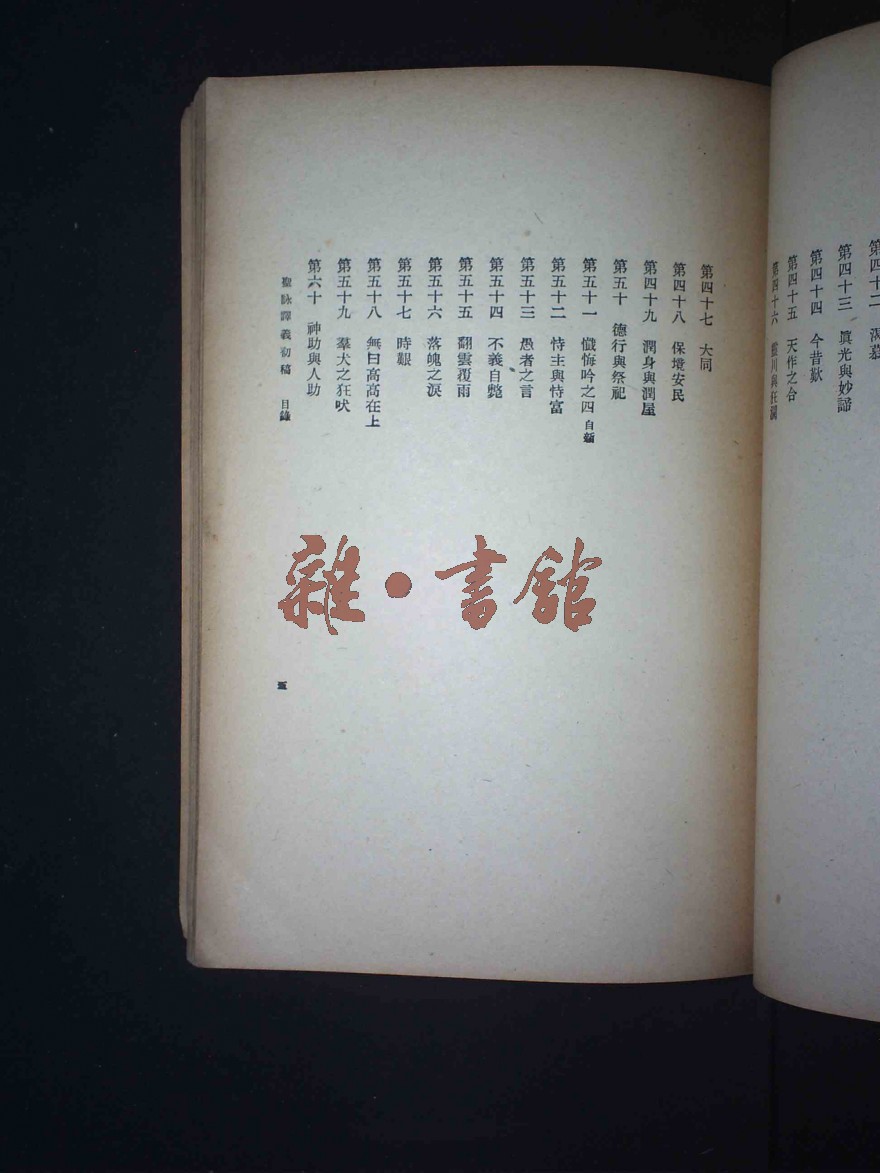 第四十二 渴慕
第四十三 眞光與妙諦
第四十四 今昔歎
第四十五 天作之合
第四十六 川與狂瀾
第四十七 大同
第四十八 保壃安民
第四十九 潤身與潤屋
第五十 德行與祭祀
第五十一 懺悔吟之四 自新
第五十二 恃主與恃富
第五十三 愚者之言
第五十四 不義自斃
第五十五 翻雲覆雨
第五十六 落魄之淚
第五十七 時艱
第五十八 無曰高高在上
第五十九 羣犬之狂吠
第六十 神助與人助
聖詠譯義初稿 目錄
五
雜·書館